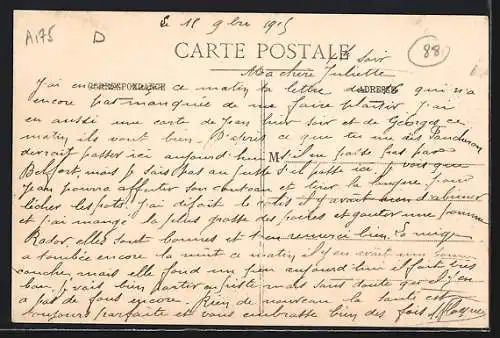 A175 D
Le 18 9bre 1915
CARTE POSTALE
le soir
88
Ma chère Juliette
CORRESPONDANCE
ADRESSE
J'ai en ce matin ta lettre du 16 qui n'a
encore pas manquée de me faire plaisir. J'ai
eu aussi une carte de Jean hier soir et de Georges ce
matin ils vont bien. D'après ce que tu me dis
devrait passer ici aujourd'hui M s'il ne passe pas par
Belfort, mais je sais pas au juste s'il passe ici je vois que
Jean pourra affuter son couteau et tirer la langue pour
lécher les pots. J'ai défait le colis il y avait rien d'abimer
et j'ai mangé la plus grosse des poires et gouter une pomme
Rador, elles sont bonnes et t'en remercie bien. La neige
a tombée encore la nuit ce matin il y en avait une bonne
couche, mais elle fond un peu aujourd'hui il fait très
bon. Je vais bien partir en piste mais sans doute que il y en
a pas de fous encore. Rien de nouveau la santé est
toujours parfaite et vous embrasse bien des fois